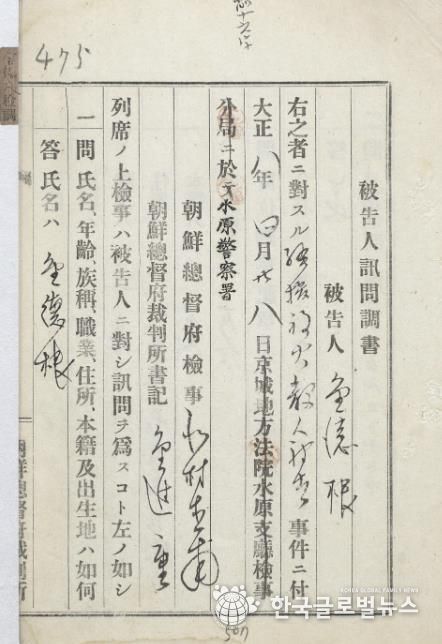 475
被告人訊問調書
被告人 金德根
右之者ニ對スル騷擾放火殺人被告事件ニ付
大正八年四月廿八日京城地方法院水原支廳檢事
分局ニ於テ水原警察署
朝鮮總督府檢事
朝鮮總督府裁判所書記 金進重
列席ノ上檢事ハ被告人ニ對シ訊問ヲ爲スコト左ノ如シ
一問 氏名、年齡、族稱、職業、住所、本籍及出生地ハ如何
答 氏名ハ 金德根
朝鮮總督府裁判所
KOREA GLOBAL FAMILY NEWS
한국글로벌뉴스